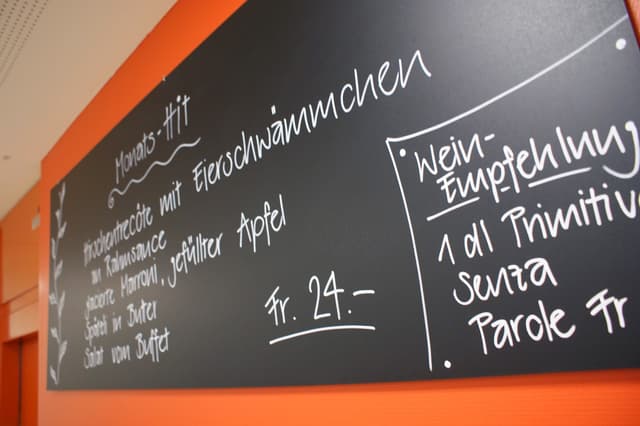 Monats-Hit
Hirschentrecôte mit Eierschwämmchen
an Rahmsauce
glacierte Marroni, gefüllter Apfel
Spätzli in Buter
Salat vom Buffet
Fr. 24.-
Wein-
Empfehlung
1 dl Primitiv
Senza
Parole Fr